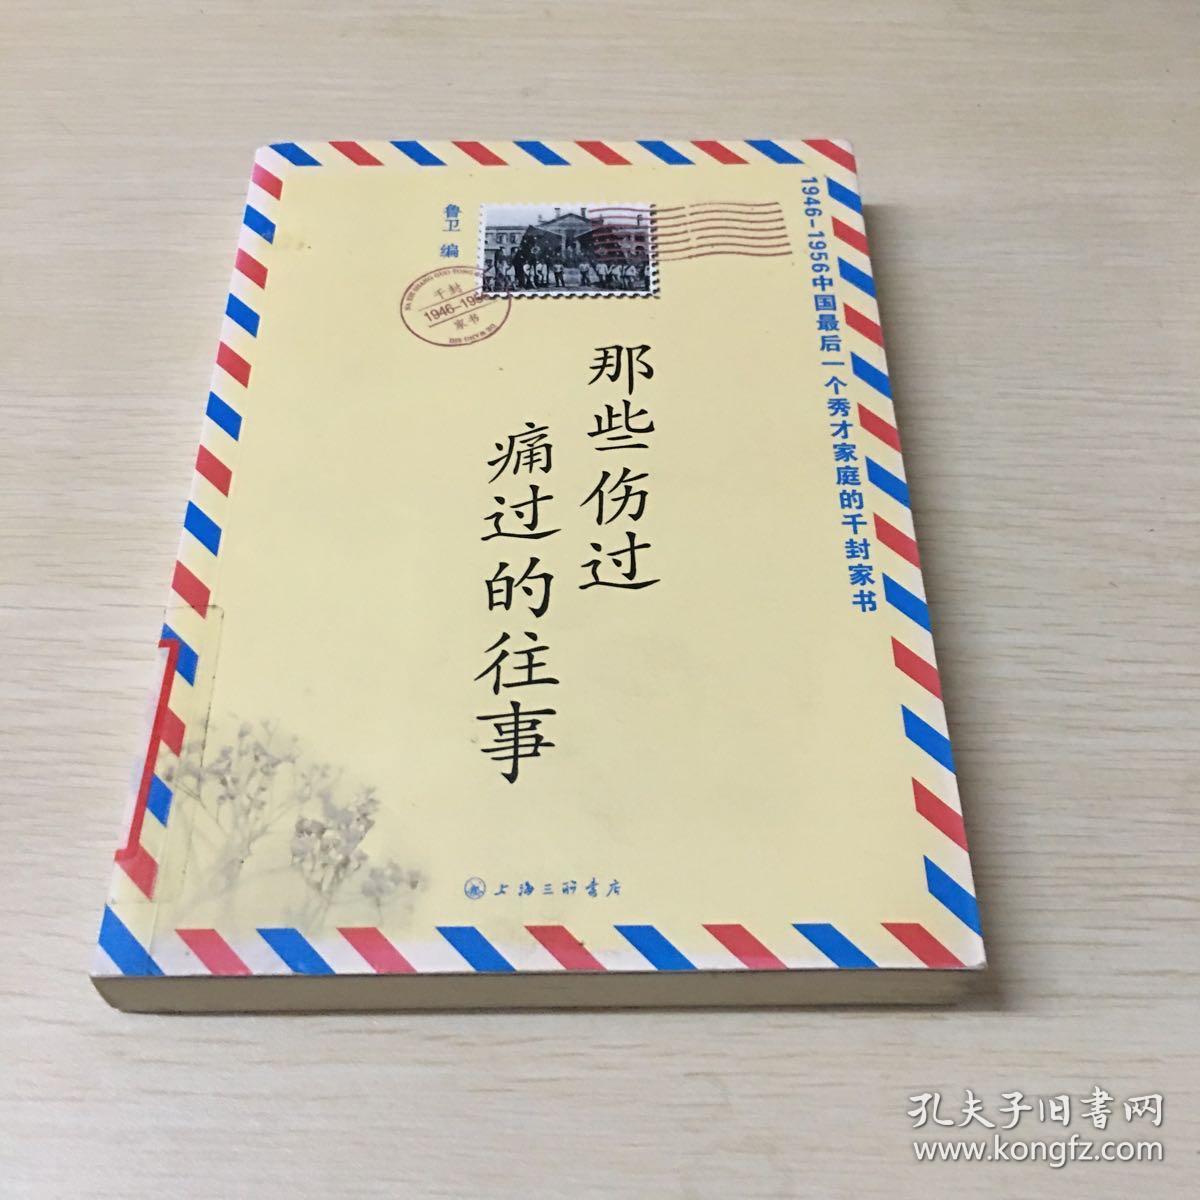 鲁卫 编
千封
1946-1956
家书
那些伤过
痛过的往事
1946-1956中国最后一个秀才家庭的千封家书
上海三联书店
孔夫子旧書网
www.kongfz.com